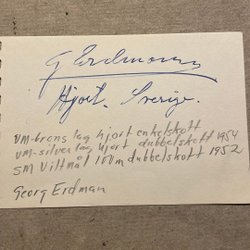 G Erdmann
Hjort. Sverige.
VM-brons lag hjort enkelskott
VM-silver lag hjort dubbelskott 1954
SM Viltmål 100m dubbelskott 1952
Georg Erdman